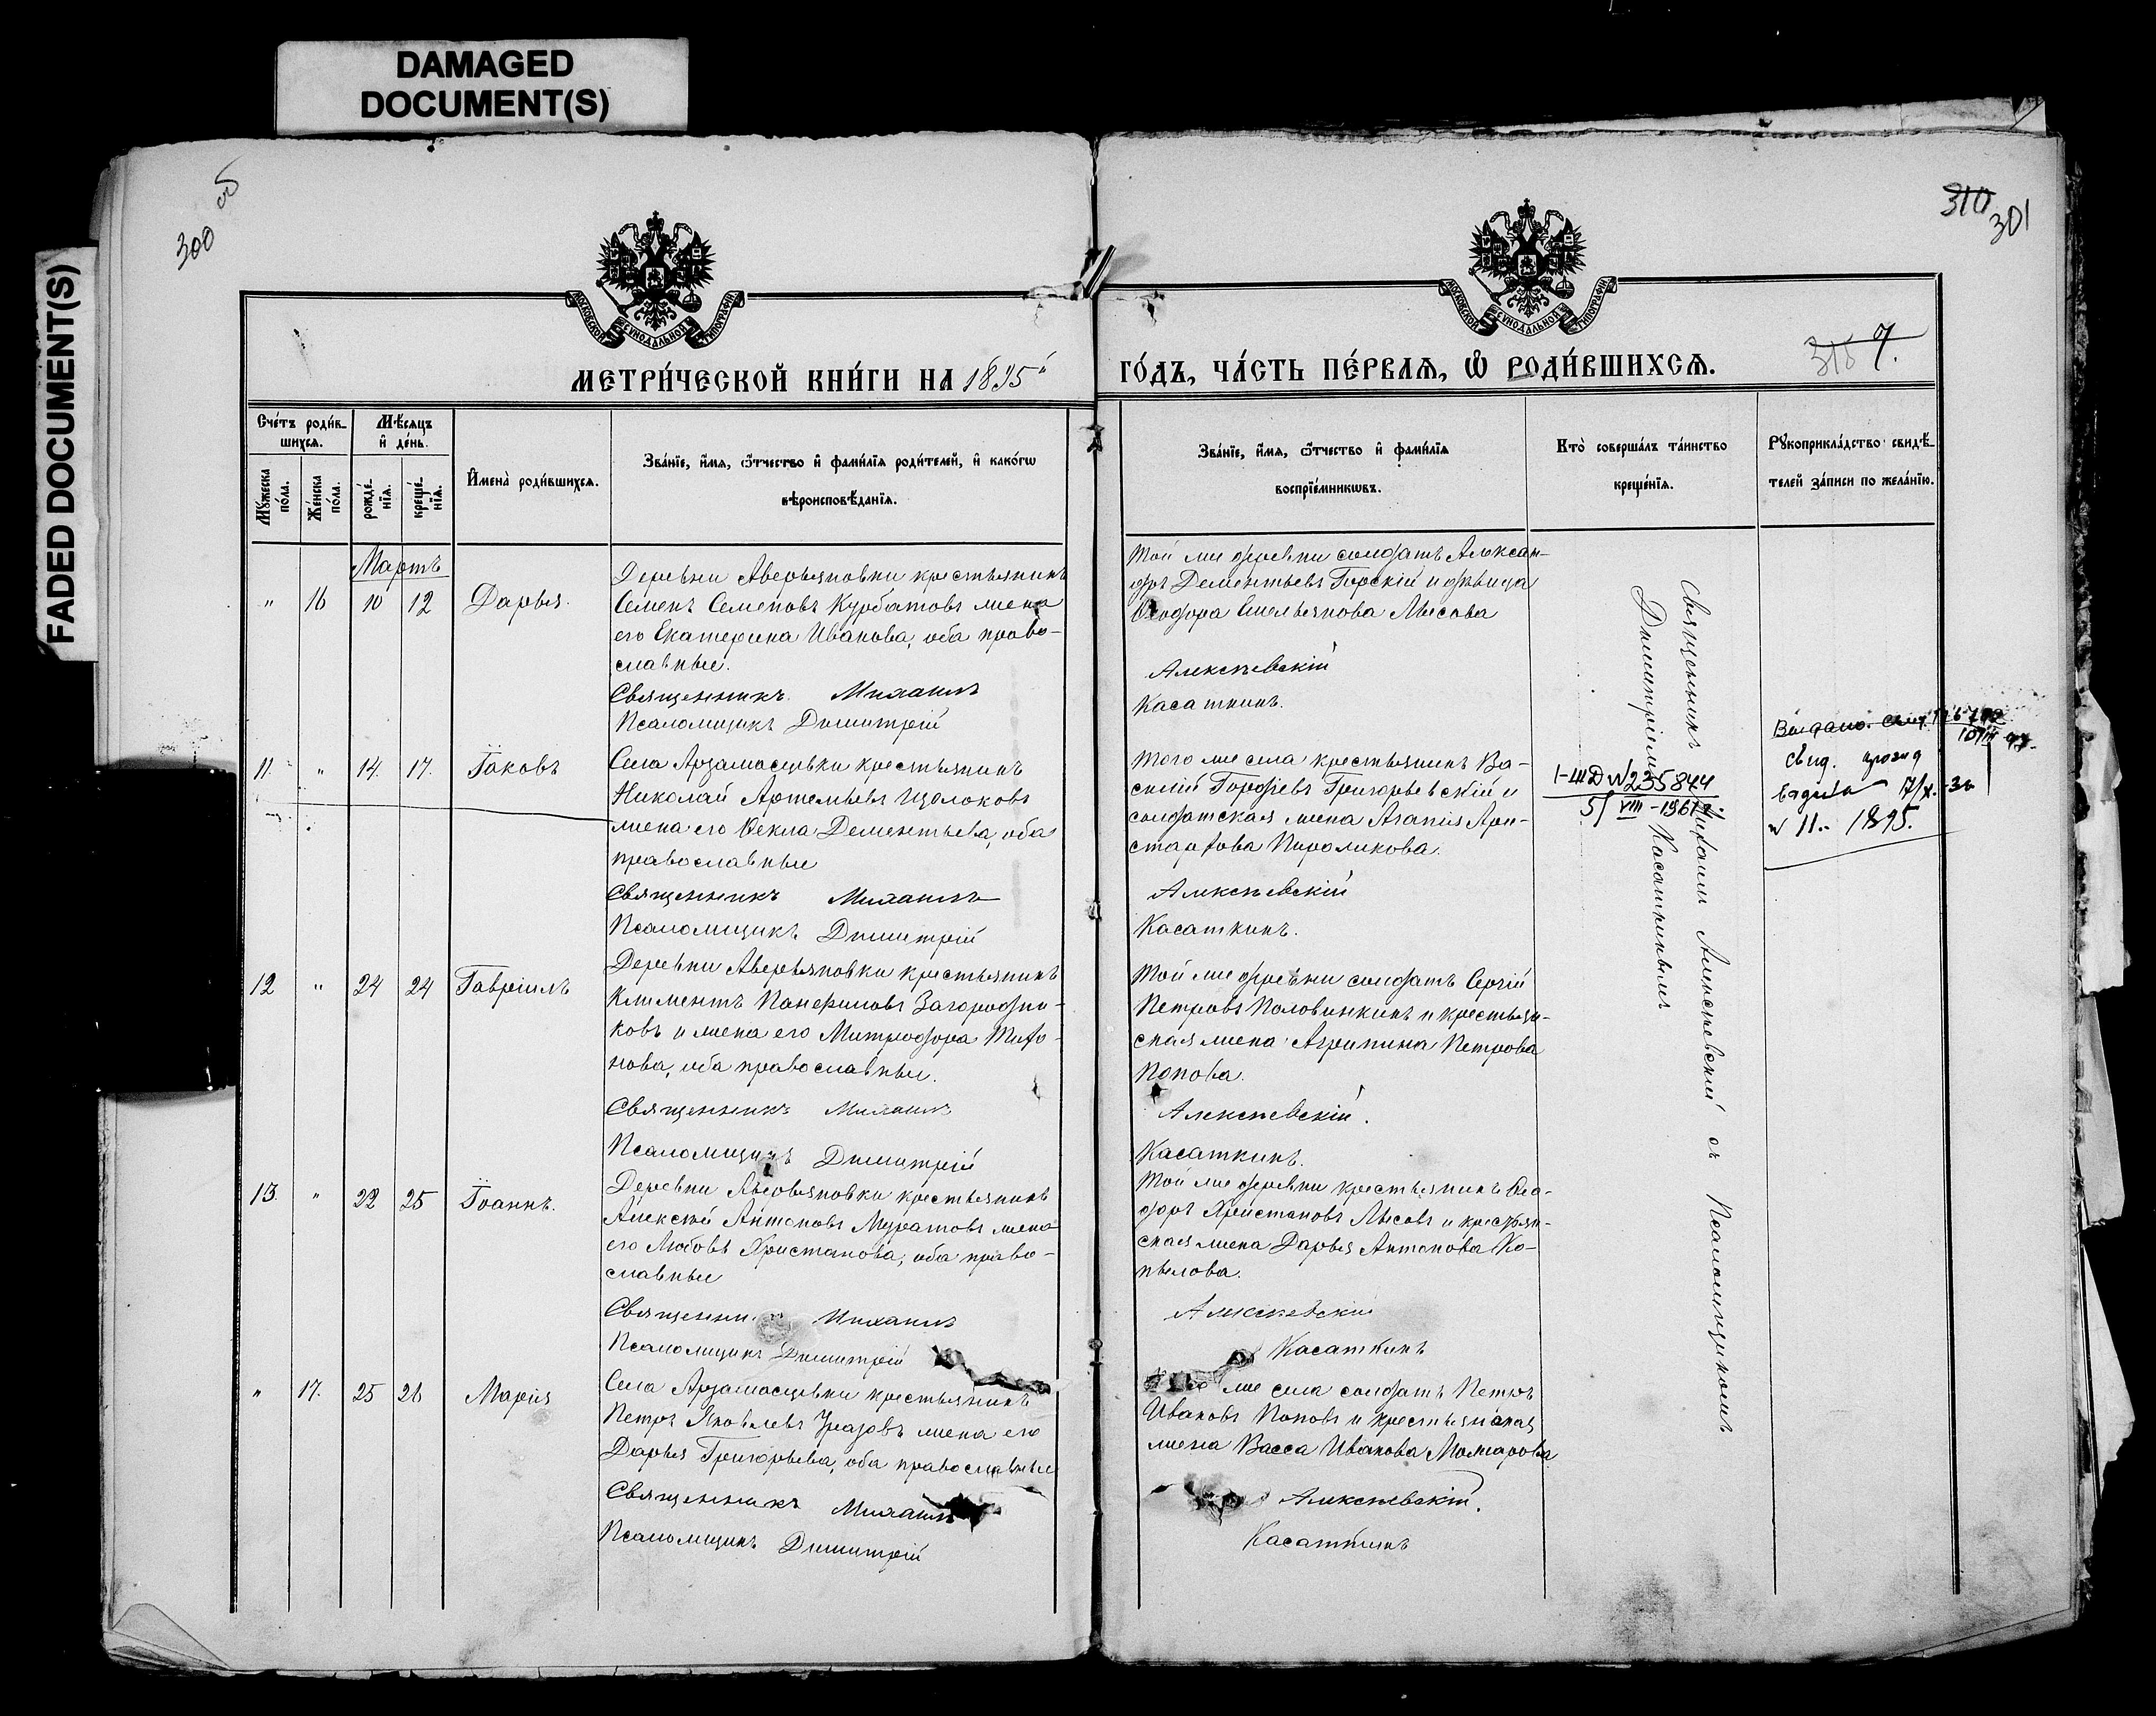 DAMAGED
DOCUMENT(S)
FADED DOCUMENT(S)
300 об
310
301
МОСКОВСКОЙ СѴНОДАЛЬНОЙ ТИПОГРАФІИ
МОСКОВСКОЙ СѴНОДАЛЬНОЙ ТИПОГРАФІИ
МЕТРИ́ЧЕСКОЙ КНИ́ГИ НА 1895й
ГО́ДЪ, ЧА́СТЬ ПЕ́РВАѦ, Ѽ РОДИ́ВШИХСѦ.
7.
Сче́тъ роди́в-
шихсѧ.
Мѣ́сѧцъ
и҆ де́нь.
Мꙋ́жеска по́ла.
Же́нска по́ла.
рожде́-нїѧ.
креще́-нїѧ.
И҆мена̀ роди́вшихсѧ.
Зва́нїе, и҆́мѧ, ѻ҆́тчество и҆ фами́лїѧ роди́телей, и҆ како́гѡ
вѣроисповѣ́данїѧ.
Зва́нїе, и҆́мѧ, ѻ҆́тчество и҆ фами́лїѧ
воспрїе́мникѡвъ.
Кто̀ соверша́лъ та́инство
креще́нїѧ.
Рꙋкоприкла́дство свидѣ́-
телей за́писи по жела́нїю.
Мартъ
" 16 10 12 Дарья.
Деревни Аверьяновки крестьянинъ
Семенъ Семеновъ Курбатовъ жена
его Екатерина Иванова, оба право-
славные.
Священникъ Михаилъ
Псаломщикъ Димитрій
Той же деревни солдатъ Алексан-
дръ Дементьевъ Горскій и дѣвица
Ѳеодора Емельянова Лысова
Алексѣевскій
Касаткинъ.
11. " 14. 17. Іаковъ
Села Арзамасцевки крестьянинъ
Николай Артемьевъ Щолоковъ
жена его Ѳекла Дементьева, оба
православные
Священникъ Михаилъ
Псаломщикъ Димитрій
Того же села крестьянинъ Ва-
силій Гордѣевъ Григорьевскій и
солдатская жена Агапія Ари-
стархова Пирожкова.
Алексѣевскій
Касаткинъ.
I-ШД №235844
5/VIII-1961г.
свид.
17/X.-36
№ 11.. 1895.
12 " 24 24 Гавріилъ
Деревни Аверьяновки крестьянинъ
Климентъ Панфиловъ Загородни-
ковъ и жена его Митродора Тихо-
нова, оба православные.
Священникъ Михаилъ
Псаломщикъ Димитрій
Той же деревни солдатъ Сергій
Петровъ Половинкинъ и крестьян-
ская жена Агрипина Петрова
Попова.
Алексѣевскій.
Касаткинъ.
13. " 22 25 Іоаннъ.
Деревни Аверьяновки крестьянинъ
Алексѣй Антоновъ Муратовъ жена
его Любовь Христанова, оба право-
славные
Михаилъ
Псаломщикъ Димитрій
Той же деревни крестьянинъ Ѳео-
доръ Христановъ Лысовъ и крестьян-
ская жена Дарья Антонова Ко-
пылова.
Алексѣевскій
Касаткинъ
" 17. 25 26 Марія
Села Арзамасцевки крестьянинъ
Петръ Яковлевъ Уразовъ жена его
Дарья Григорьева, оба православные
Священникъ Михаилъ
Псаломщикъ Димитрій
же села солдатъ Петръ
Ивановъ Поповъ и крестьянская
жена Васса Иванова Можарова
Алексѣевскій.
Касаткинъ
Священникъ Михаилъ Алексѣевскій съ Псаломщикомъ
Димитріемъ Касаткинымъ